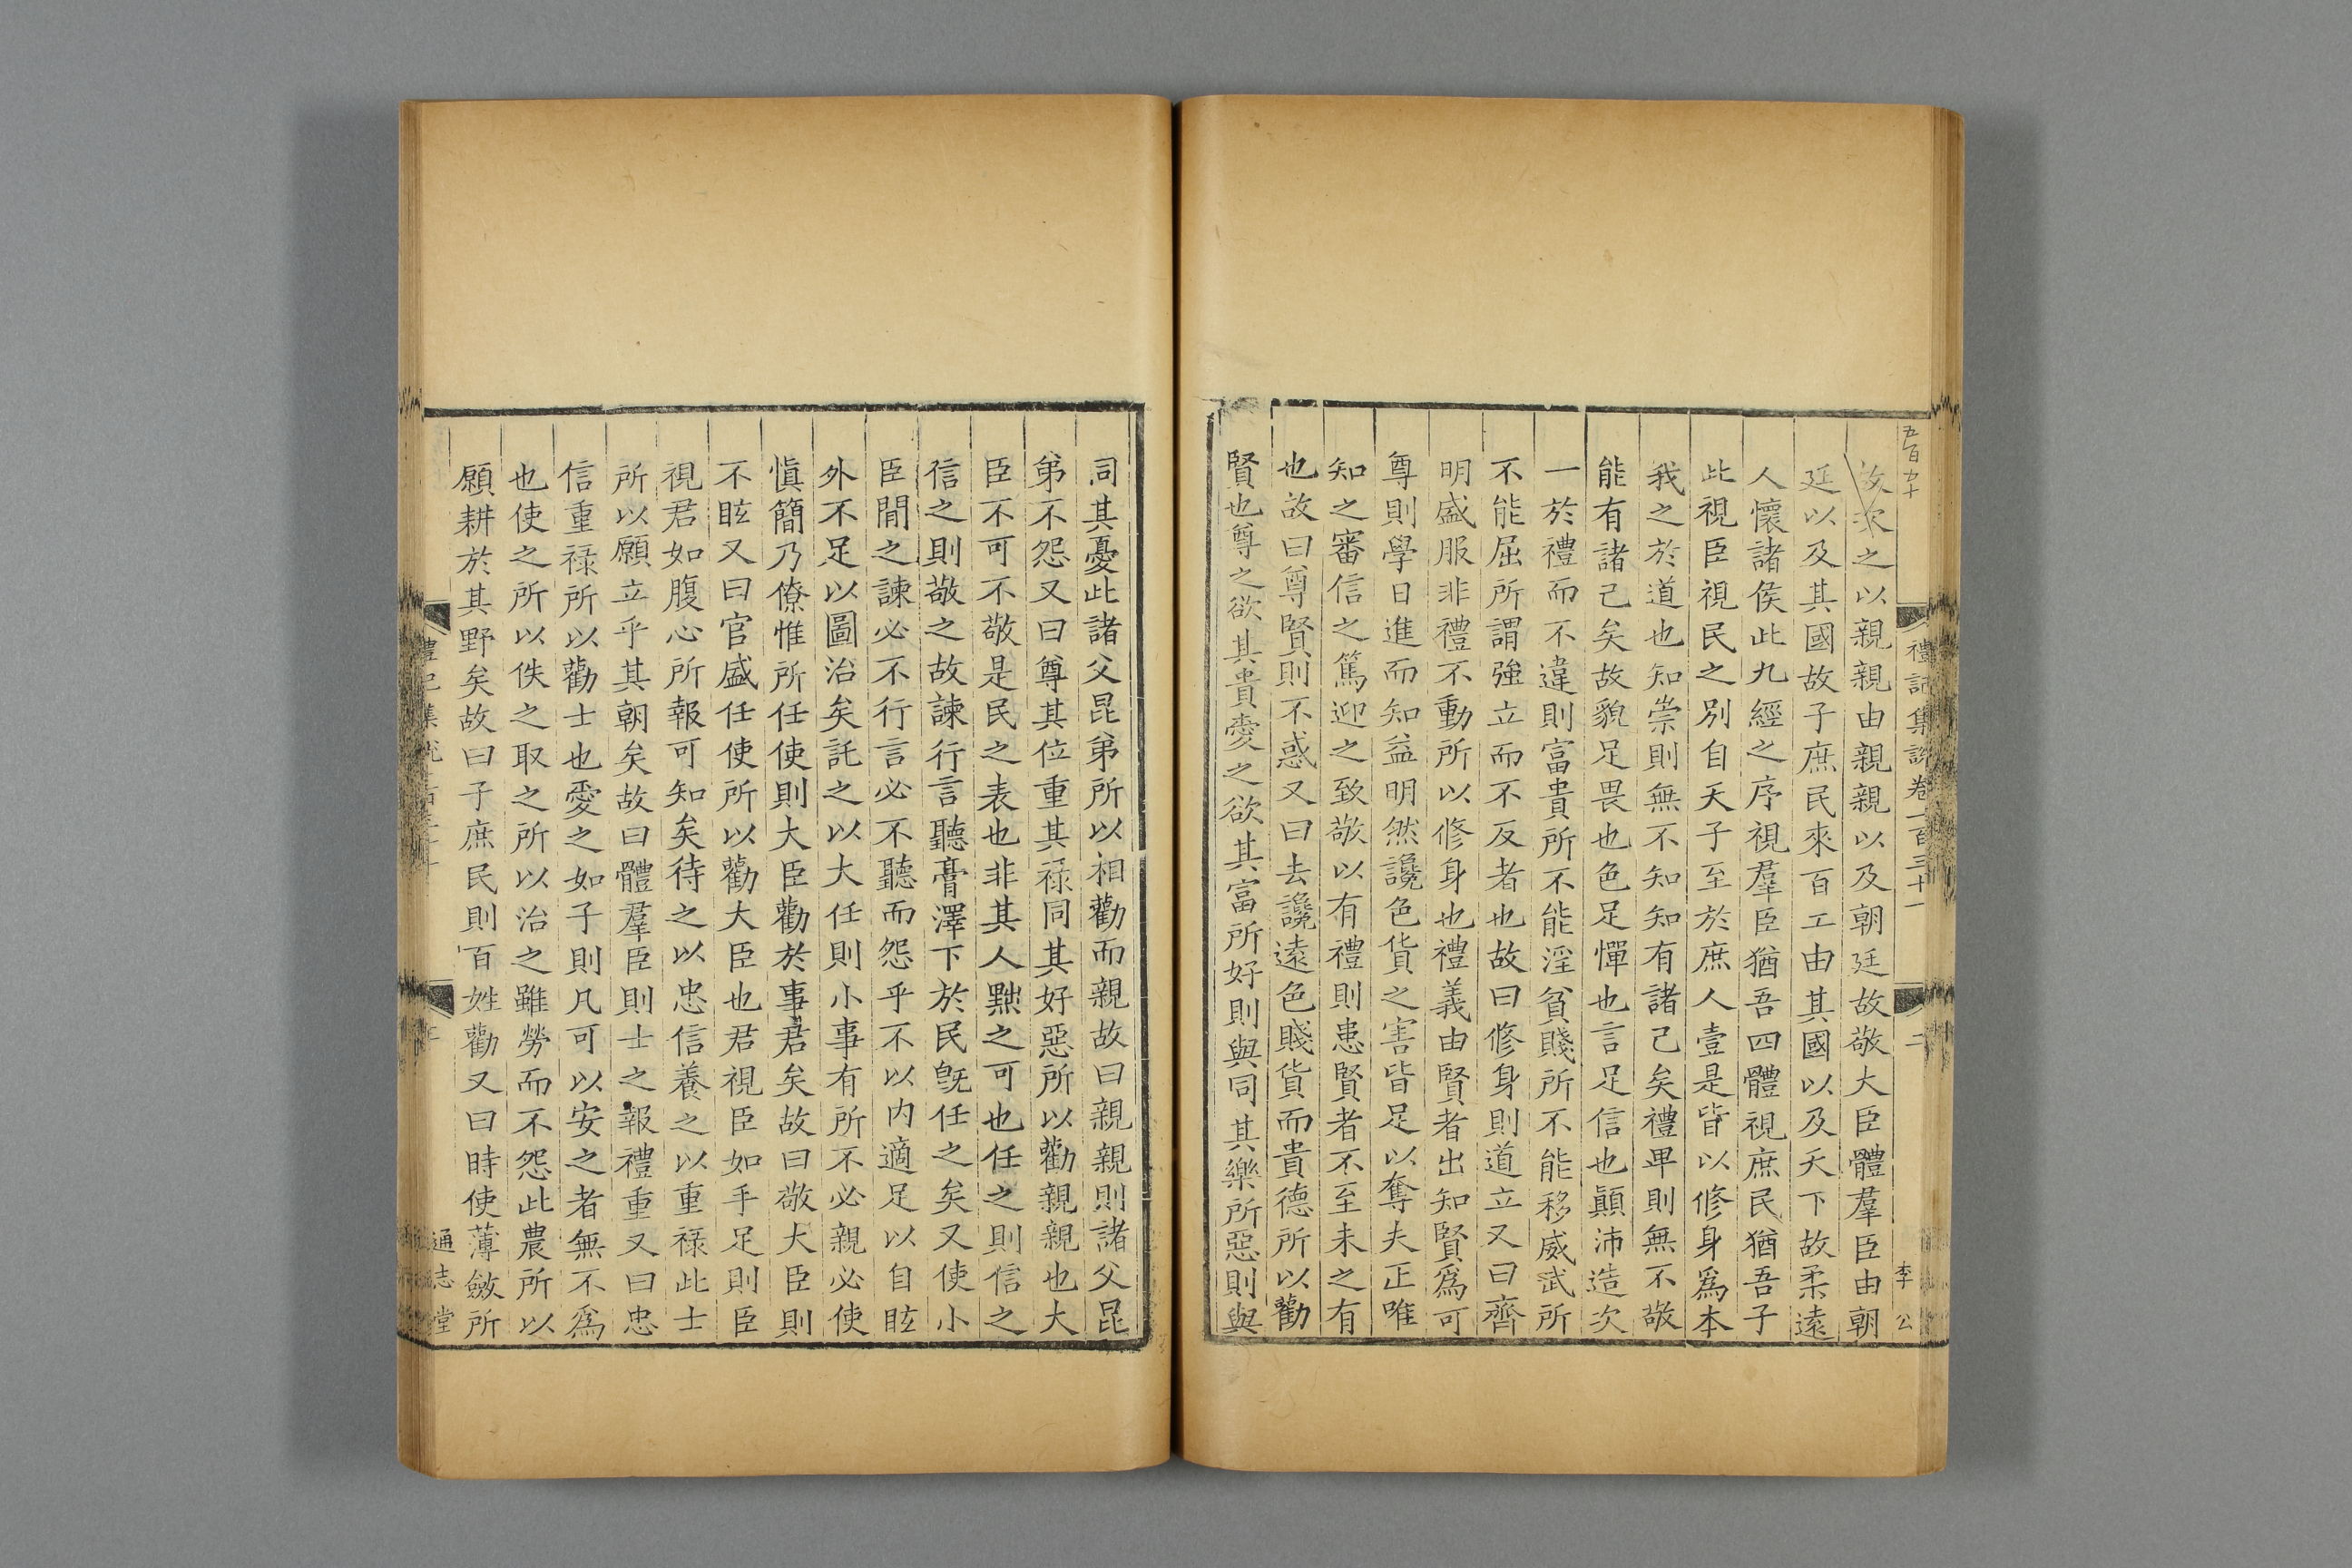 五百九十
禮記集說卷一百三十一
二
李公
故次之以親親由親親以及朝廷故敬大臣體羣臣由朝
廷以及其國故子庶民來百工由其國以及天下故柔遠
人懷諸侯此九經之序視羣臣猶吾四體視庶民猶吾子
此視臣視民之別自天子至於庶人壹是皆以修身爲本
我之於道也知崇則無不知知有諸己矣禮卑則無不敬
能有諸己矣故貌足畏也色足憚也言足信也顚沛造次
一於禮而不違則富貴所不能淫貧賤所不能移威武所
不能屈所謂強立而不反者也故曰修身則道立又曰齊
明盛服非禮不動所以修身也禮義由賢者出知賢爲可
尊則學日進而知益明然讒色貨之害皆足以奪夫正唯
知之審信之篤迎之致敬以有禮則患賢者不至未之有
也故曰尊賢則不惑又曰去讒遠色賤貨而貴德所以勸
賢也尊之欲其貴愛之欲其富所好則與同其樂所惡則與
同其憂此諸父昆弟所以相勸而親故曰親親則諸父昆
弟不怨又曰尊其位重其祿同其好惡所以勸親親也大
臣不可不敬是民之表也非其人黜之可也任之則信之
信之則敬之故諫行言聽膏澤下於民旣任之矣又使小
臣閒之諫必不行言必不聽而怨乎不以內適足以自眩
外不足以圖治矣託之以大任則小事有所不必親必使
愼簡乃僚惟所任使則大臣勸於事君矣故曰敬大臣則
不眩又曰官盛任使所以勸大臣也君視臣如手足則臣
視君如腹心所報可知矣待之以忠信養之以重祿此士
所以願立乎其朝矣故曰體羣臣則士之報禮重又曰忠
信重祿所以勸士也愛之如子則凡可以安之者無不爲
也使之所以佚之取之所以治之雖勞而不怨此農所以
願耕於其野矣故曰子庶民則百姓勸又曰時使薄斂所
通志堂